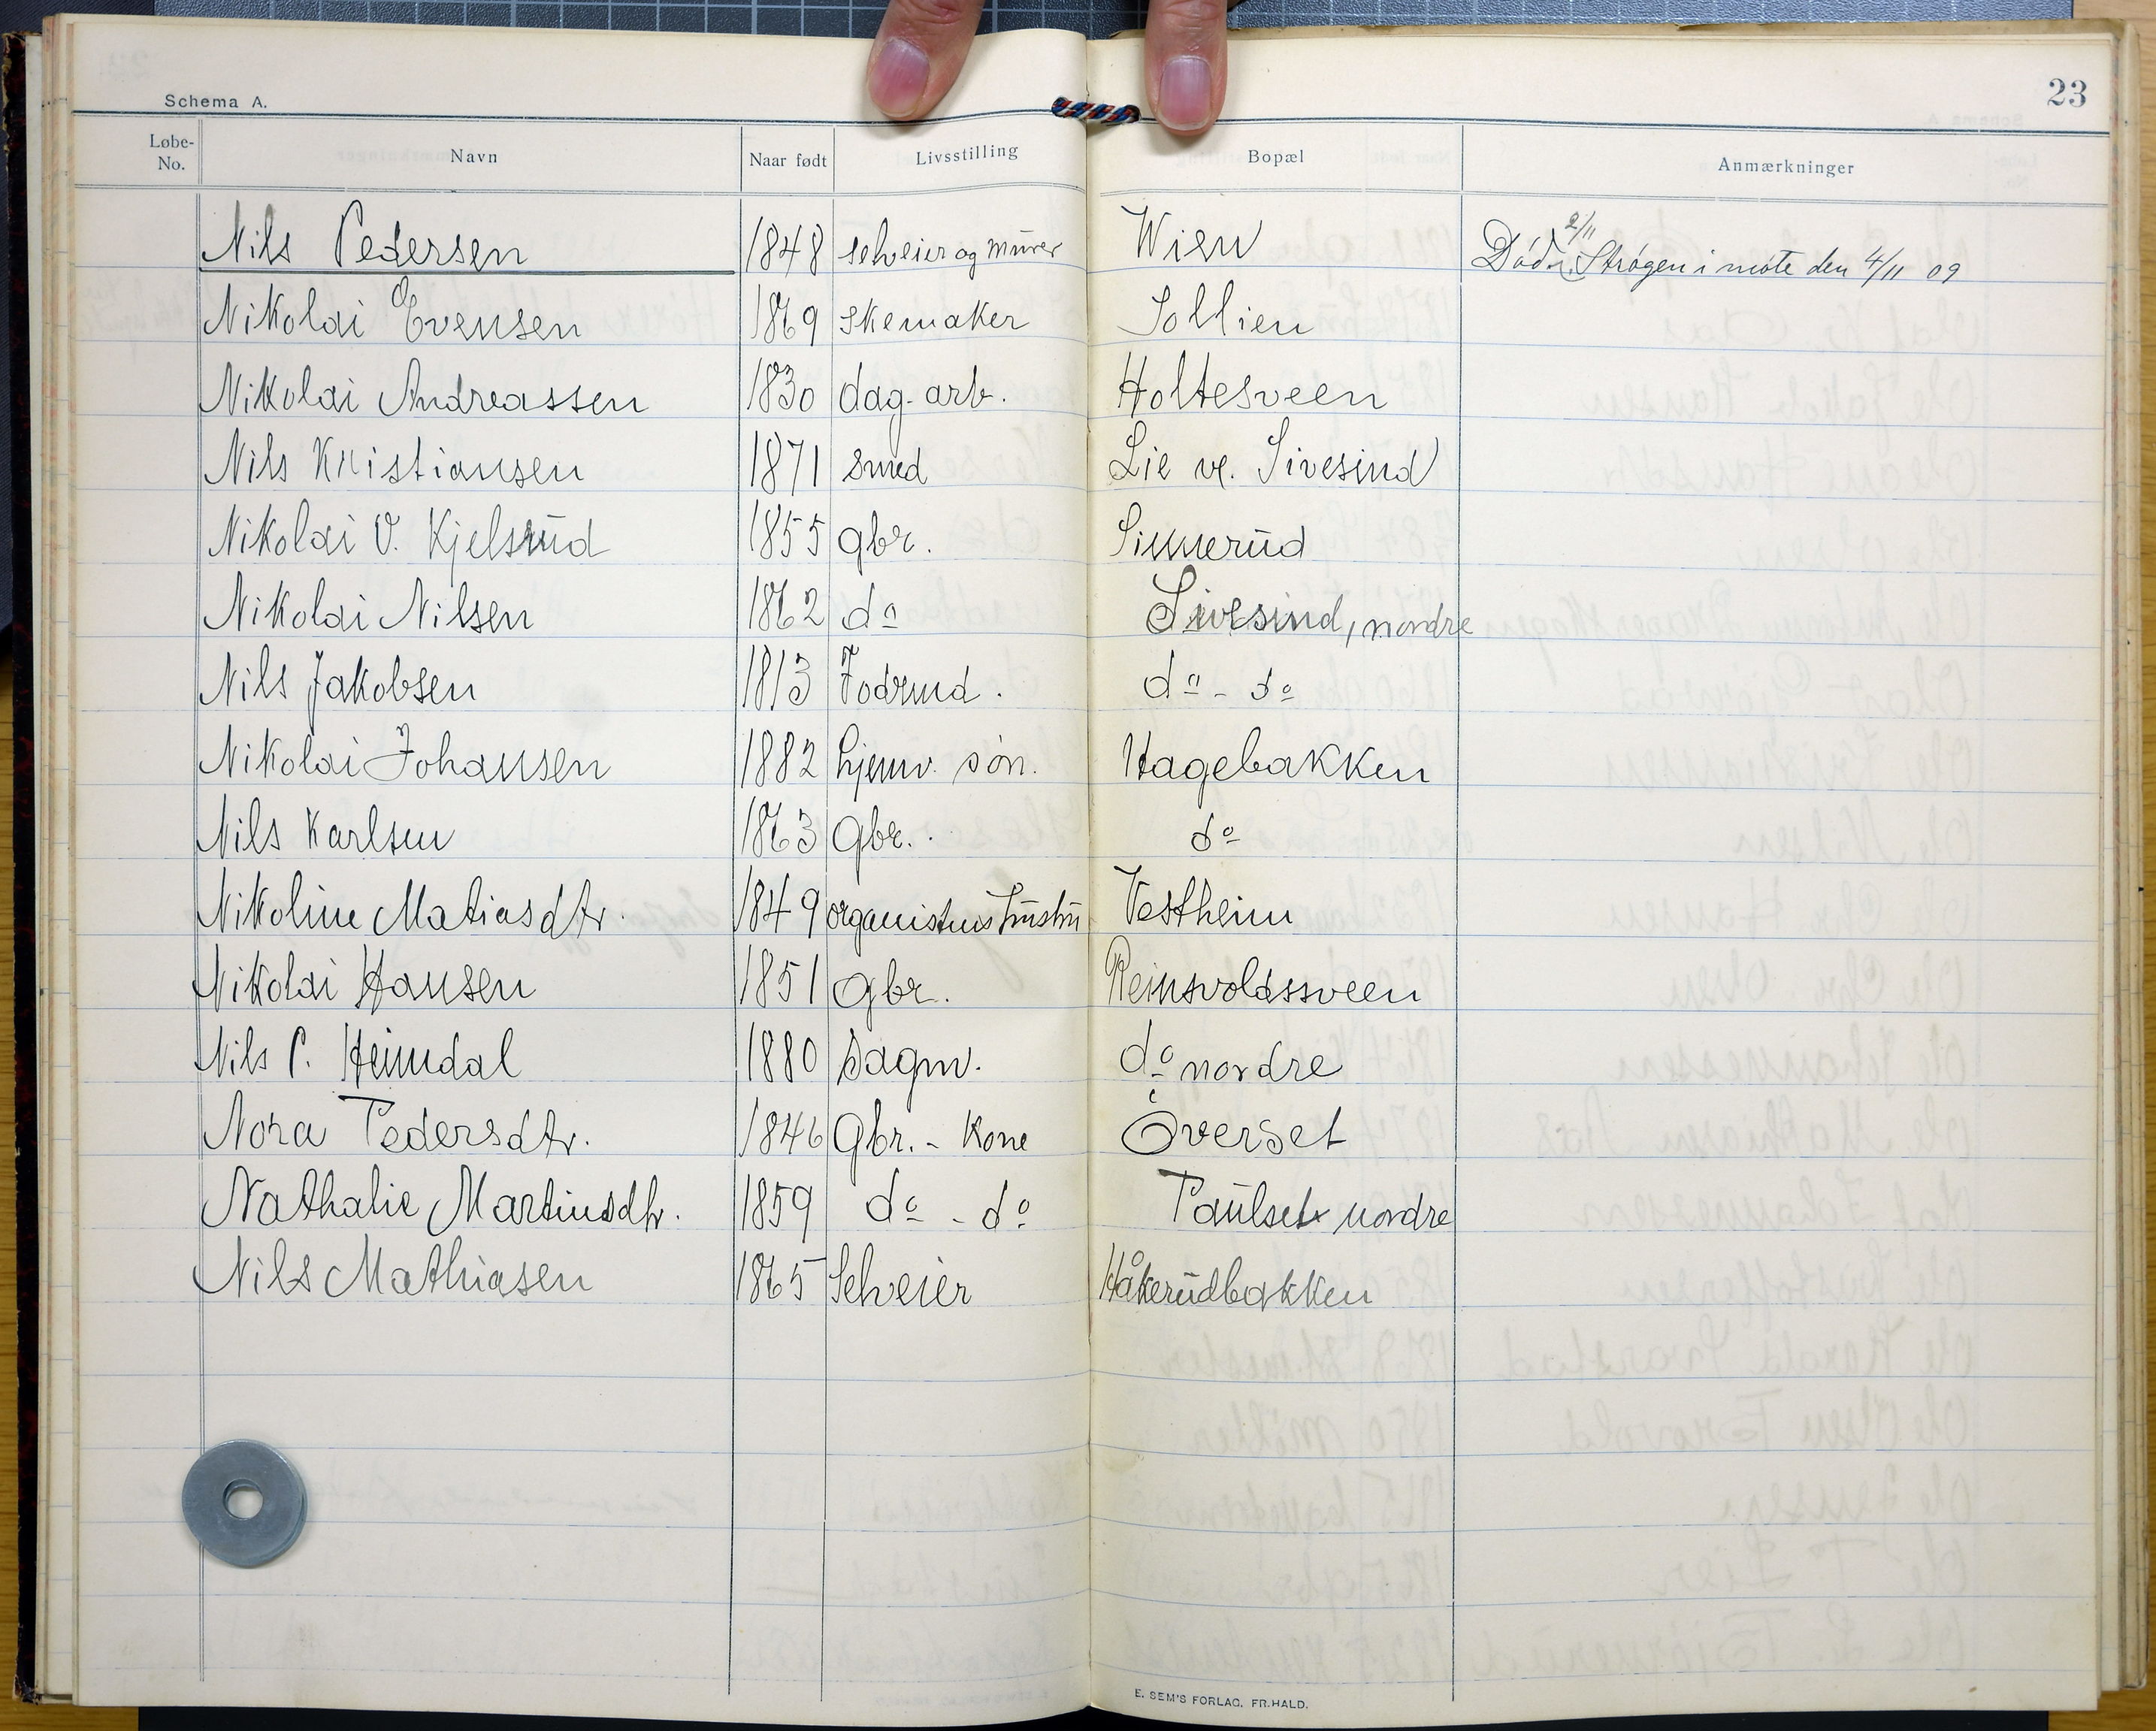 Schema A.
23
Løbe-No. Navn Naar født Livsstilling Bopæl Anmærkninger
Nils Pedersen 1848 selveier og murer Wien Død 2/11. Strøgen i møte den 4/11 09
Nikolai Evensen 1869 skemaker Sollien
Nikolai Andreassen 1830 dag-arb. Holtesveen
Nils Kristiansen 1871 smed Lie v. Sivesind
Nikolai V. Kjelsrud 1855 gbr. Sinnerud
Nikolai Nilsen 1862 do Sivesind, nordre
Nils Jakobsen 1813 Fodrmd. do - do
Nikolai Johansen 1882 hjemv. søn. Hagebakken
Nils Karlsen 1863 Gbr. do
Nikoline Matiasdtr. 1849 organistens hustru Vestheim
Nikolai Hansen 1851 Gbr. Reinsvoldssveen
Nils P. Heimdal 1880 Sagm. do nordre
Nora Pedersdtr. 1846 Gbr. - Kone Øverset
Nathalie Martinsdtr. 1859 do - do Paulset nordre
Nils Mathiasen 1865 Selveier Håkerudbakken
E. SEM'S FORLAG, FR.HALD.